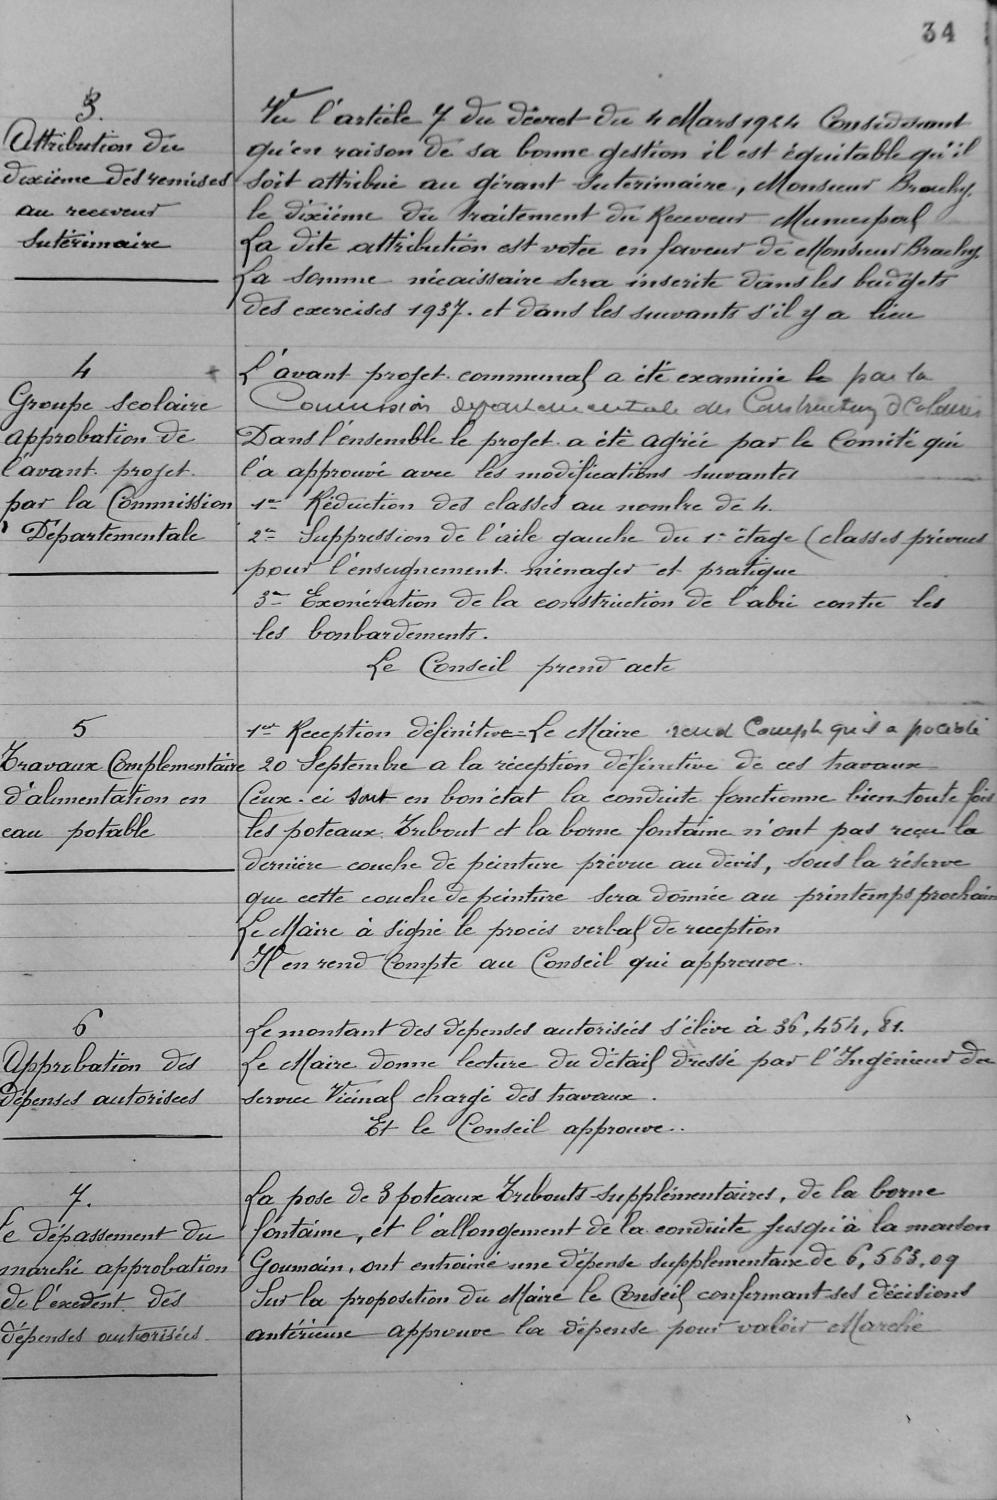 34
3.
Attribution du
dixième des remises
au receveur
Intérimaire
Vu l'article 7 du décret du 4 Mars 1924 Considérant
qu'en raison de sa bonne gestion il est équitable qu'il
soit attribué au gérant Intérimaire, Monsieur Brachy.
le dixième du traitement du Receveur Municipal
La dite attribution est votée en faveur de Monsieur Brachy.
La somme nécaissaire sera inscrite dans les budgets
des exercises 1937. et dans les suivants s'il y a lieu
4
Groupe scolaire
approbation de
l'avant. projet.
par la Commission
Départementale
L'avant projet. communal a été examiné le par la
Commission départementale des Constructions Scolaires
Dans l'ensemble le projet a été agréé par le Comité qui
l'a approuvé avec les modifications suivantes
1er Réduction des classes au nombre de 4.
2e Suppression de l'aile gauche du 1er étage (classes prévues
pour l'enseignement. ménager et pratique
3e Exonération de la construction de l'abri contre les
les bonbardements.
Le Conseil prend acte
5
Travaux Complémentaire
d'alimentation en
eau potable
1er Reception définitive = Le Maire rend Compte qu'il a procédé
20 Septembre a la réception définitive de ces travaux
Ceux-ci sont en bon état la conduite fonctionne bien toute fois
les poteaux Tribout et la borne fontaine n'ont pas reçu la
dernière couche de peinture prévue au devis, sous la réserve
que cette couche de peinture sera donnée au printemps prochain
Le Maire à signé le procès verbal de reception
Il en rend Compte au Conseil qui approuve.
6
Approbation des
Dépenses autorisées
Le montant des dépenses autorisées s'élève à 36,454,81.
Le Maire donne lecture du détail dressé par l'Ingénieur du
service Vicinal chargé des travaux.
Et le Conseil approuve..
7.
Le dépassement du
marché approbation
de l'excedent. des
dépenses autorisées
La pose de 3 poteaux Tribouts supplémentaires, de la borne
fontaine, et l'allongement de la conduite jusqu'à la maison
Goumain, ont entrainé une dépense supplementaire de 6,563,09
Sur la proposition du Maire le Conseil confirmant ses décisions
antérieure approuve la dépense pour valoir Marché